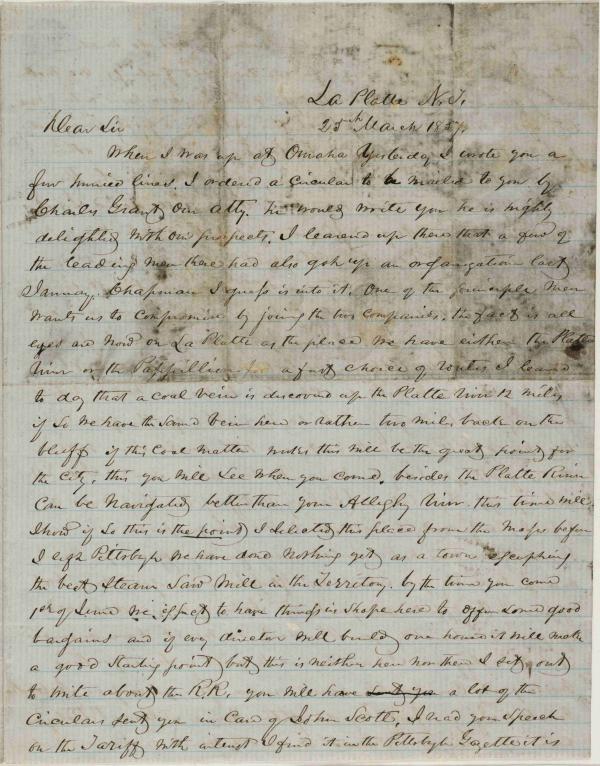 La Platte N.T.
25th March 1857,
Dear Sir
When I was up at Omaha Yesterday I wrote you a
few hurried lines. I ordered a Circular to be mailed to you by
Charles Grant Our atty. he would write you he is mighty
delighted with our prospects. I learend up there that a few of
the leading men there had also got up an organization last
January, Chapman I guess is into it. One of the principle men
wants us to Compromise by joining the two Companies. the fact is all
eyes are now on La Platte as the place we have either the Platte
River or the Pappillion for a first choice of routes I learnd
to day that a coal vein is discoverd up the Platte River 12 miles
if So we have the Same Vein here or rather two miles back on the
bluff if this Coal matter makes this will be the great point for
the City, this you will See when you come. besides the Platte River
Can be Navigated better than your Alleghy River. this time will
Show if So this is the point I Selected this place from the Maps before
I left Pittsburgh we have done Nothing yet as a town excepting
the best Steam Saw Mill in the Territory. by the time you come
1st of June we expect to have things in Shape here to offer Some good
bargains and if evry director will build one house it will make
a good Starting point but this is neither here nor there I set out
to write about the R.R, you will have a lot of the
Circulars sent you in Care of John Scott. I read your Speech
on the Tariff with interest I find it in the Pittsburgh Gazette it is